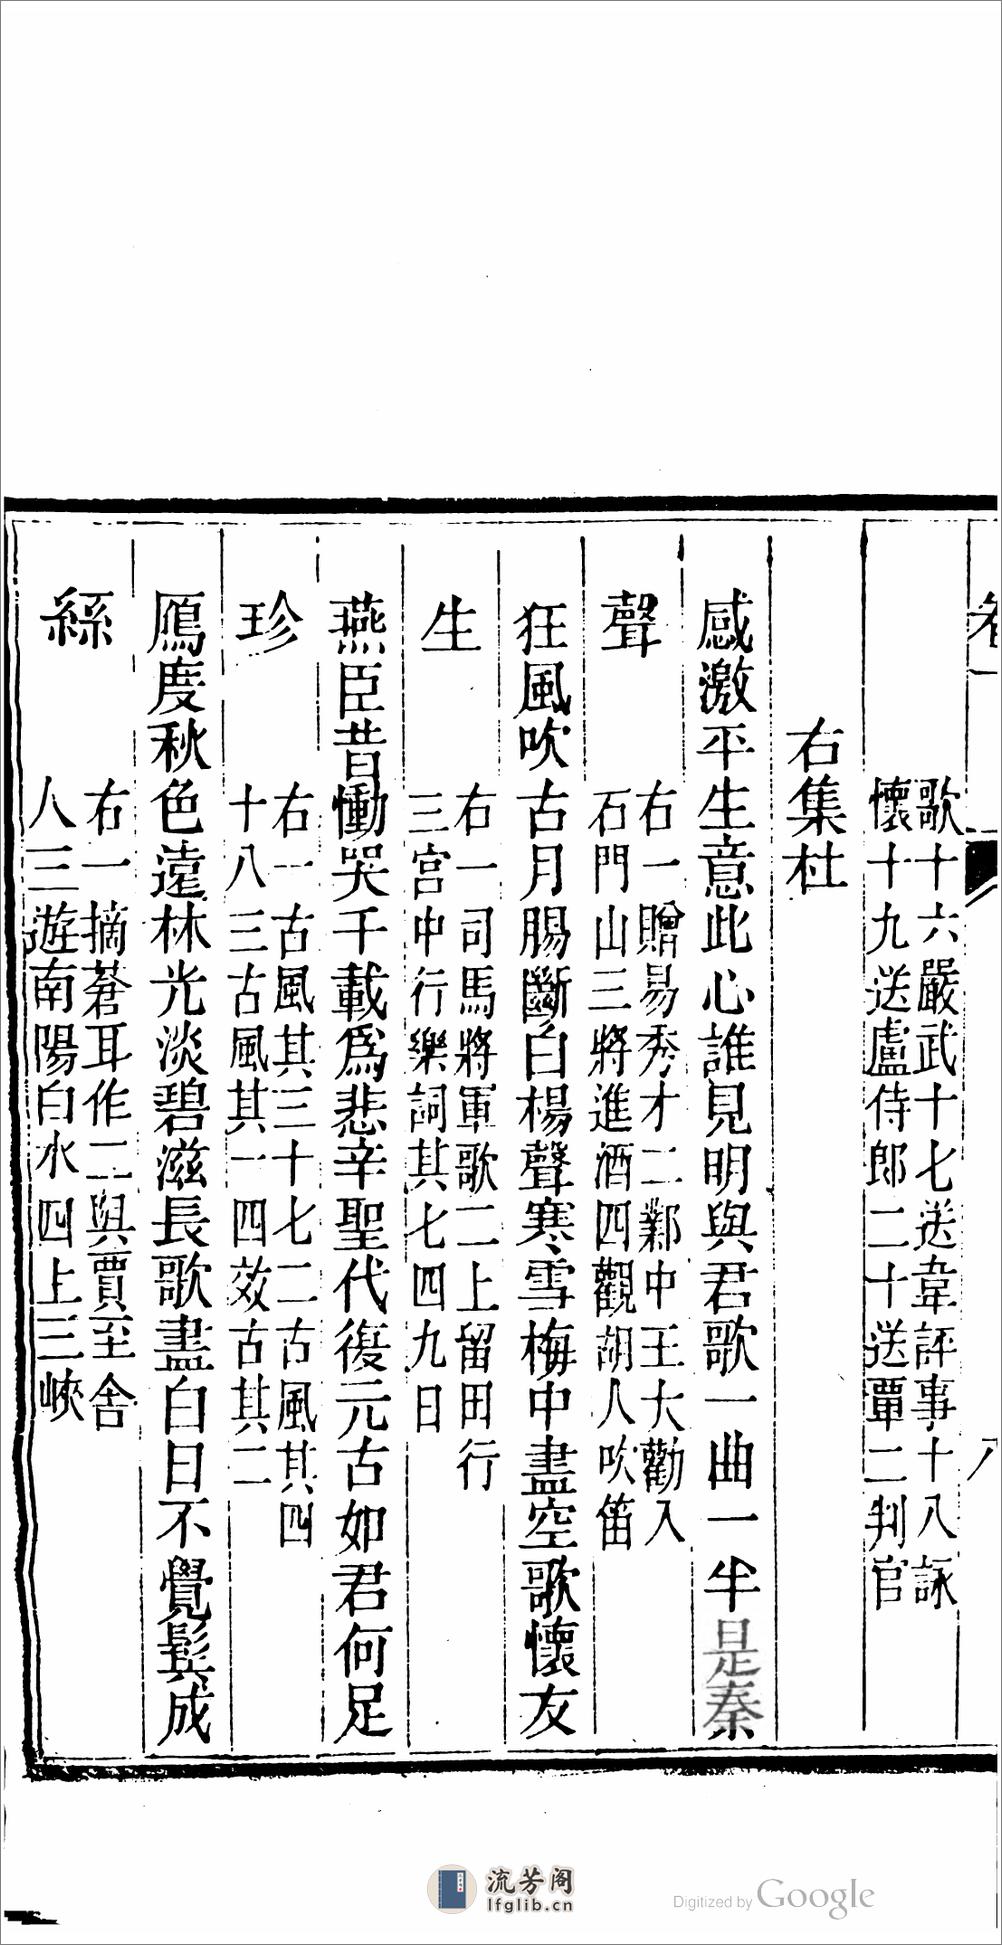 卷一
八
歌十六嚴武十七送韋評事十八詠
懷十九送盧侍郎二十送覃二判官
右集杜
感激平生意此心誰見明與君歌一曲一半是秦
聲
右一贈易秀才二鄴中王大勸入
石門山三將進酒四觀胡人吹笛
狂風吹古月腸斷白楊聲寒雪梅中盡空歌懷友
生
右一司馬將軍歌二上留田行
三宮中行樂詞其七四九日
燕臣昔慟哭千載爲悲辛聖代復元古如君何足
珍
右一古風其三十七二古風其四
十八三古風其一四效古其二
鴈度秋色遠林光淡碧滋長歌盡白日不覺鬂成
絲
右一摘蒼耳作二與賈至舍
人三遊南陽白水四上三峽
流芳阁
lfglib.cn
Digitized by Google